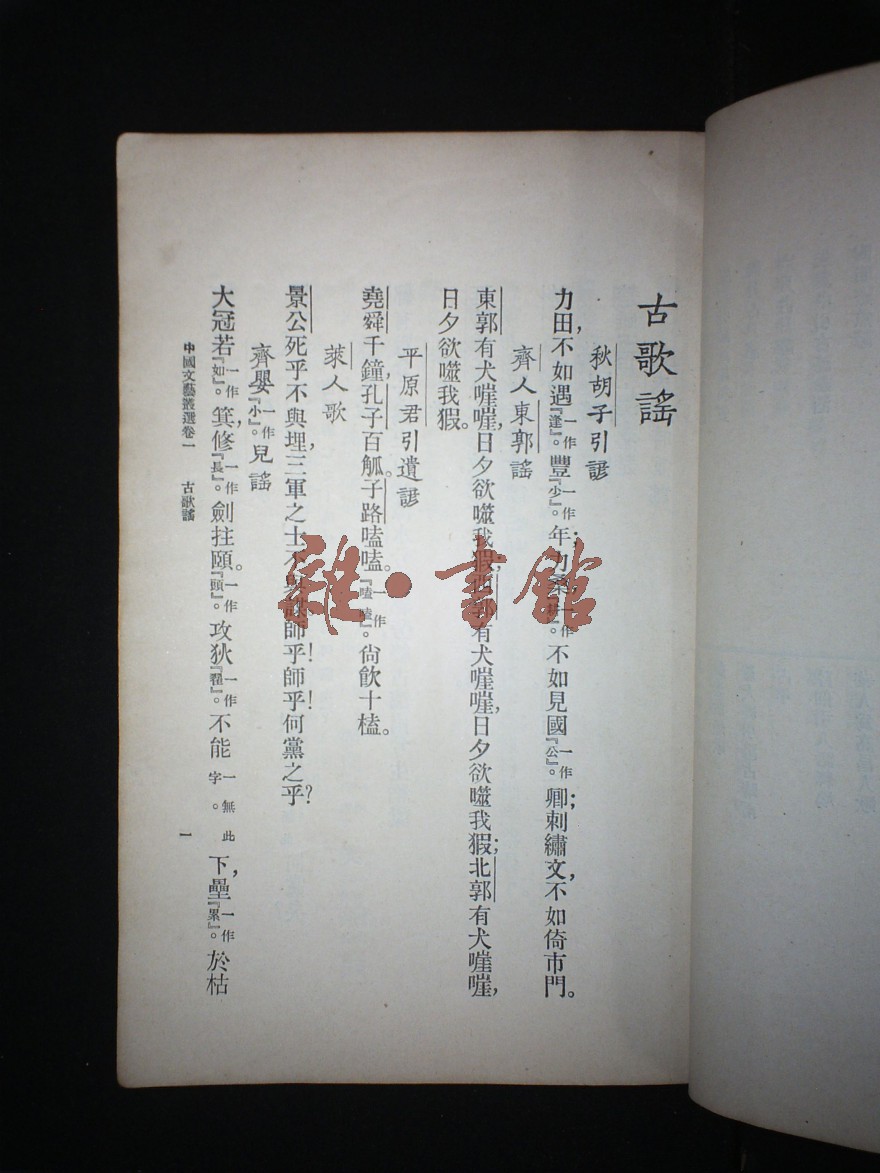 古歌謠
秋胡子引諺
力田,不如遇一作『逢』。豐一作『少』。年;力桑一作不如見國一作『公』。卿;刺繡文,不如倚市門。
齊人東郭謠
東郭有犬嘊嘊,日夕欲噬我猳;西郭有犬嘊嘊,日夕欲噬我猳;北郭有犬嘊嘊,
日夕欲噬我猳。
平原君引遺諺
堯舜千鐘,孔子百觚。子路嗑嗑。一作『嗑嗑』。尙飮十榼。
萊人歌
景公死乎不與埋,三軍之士不與謀師乎!師乎!何黨之乎?
齊嬰一作『小』。兒謠
大冠若一作『如』。箕,修一作『長』。劍拄頤。一作『頭』。攻狄一作『翟』。不能一無此字。下,壘一作『累』。於枯
中國文藝叢選卷一 古歌謠 一
雜·書館